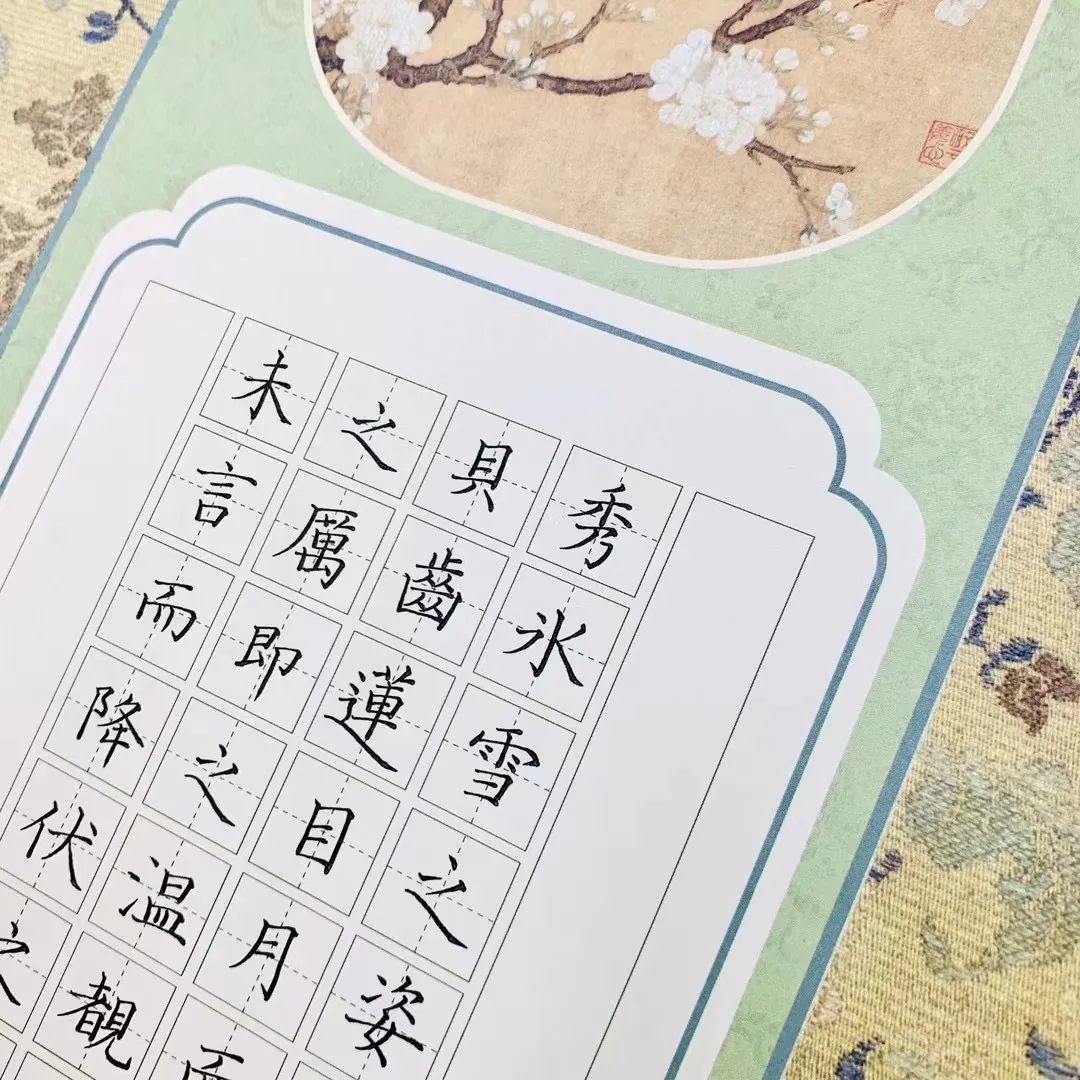 秀氷雪之姿
貝齒蓮目月
之厲即之温覩
未言而降伏之